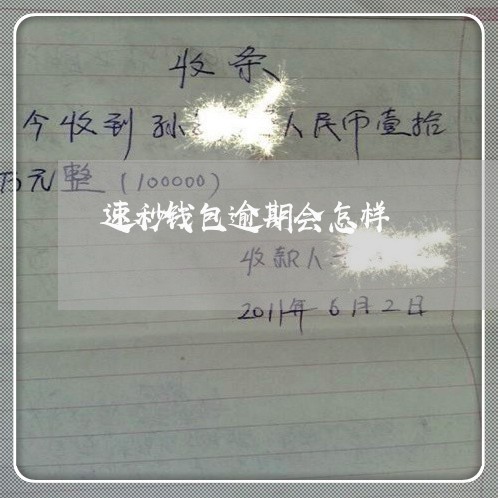 收条
今收到孙 人民币壹拾
万元整（100000）
速秒钱包逾期会怎样
收款人
2011年6月2日